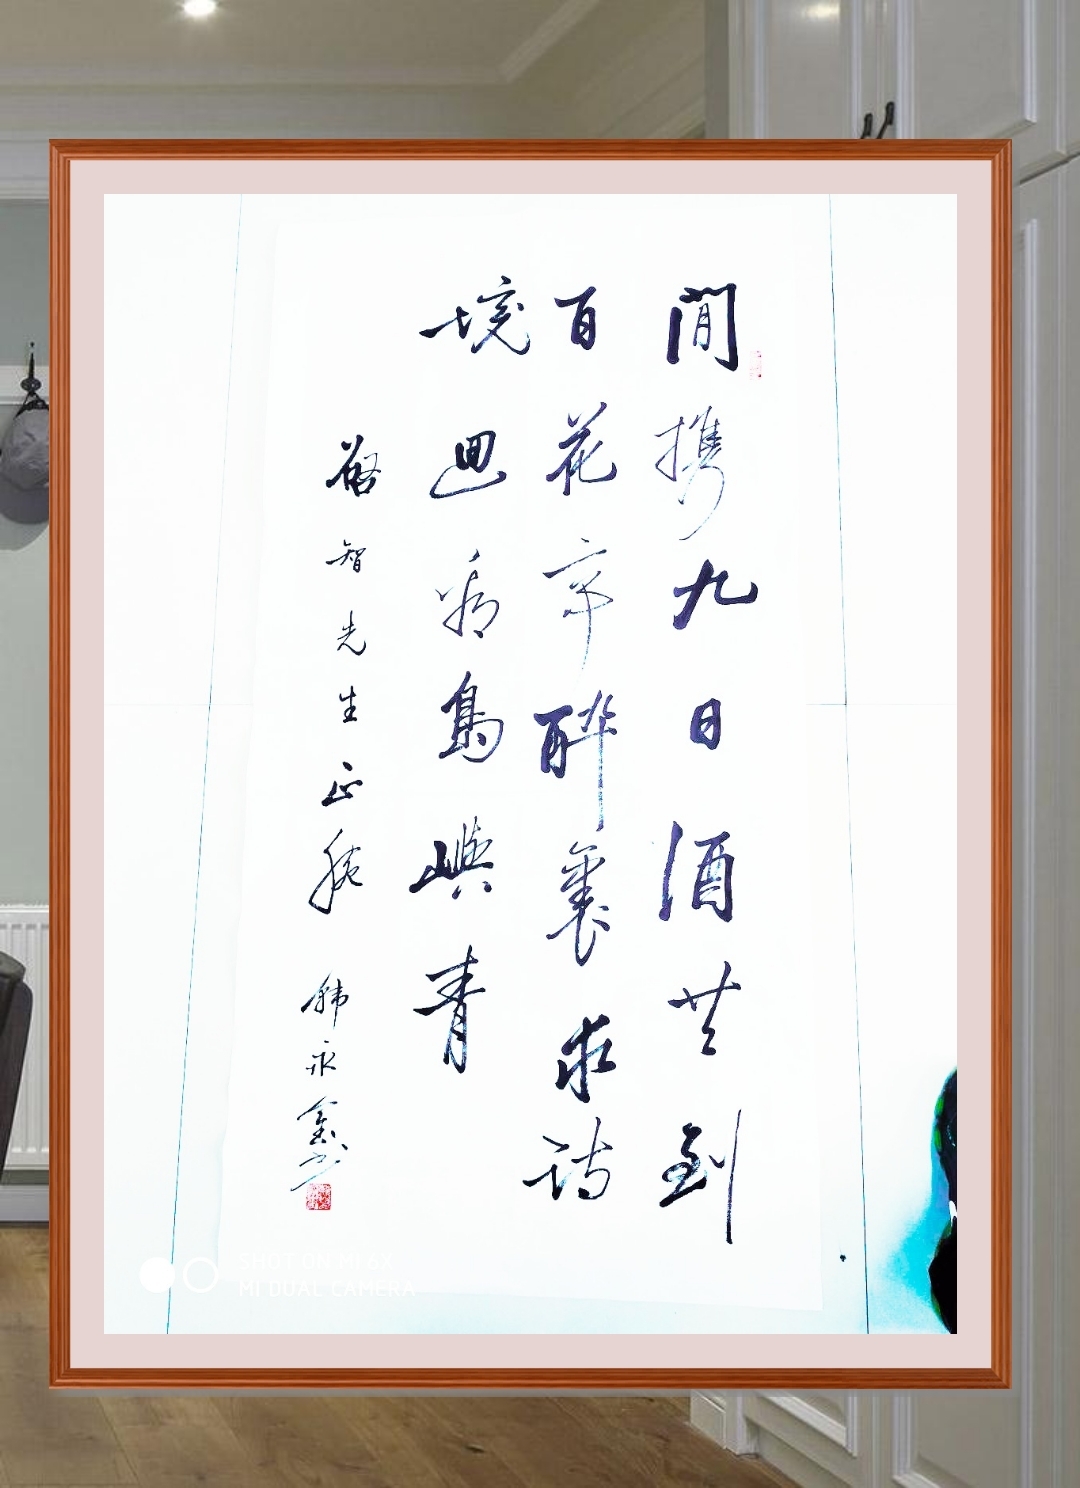 閒携九日酒共到
百花亭醉裏求詩
境迴看島嶼青
啓智先生正腕 韩永鑫书
SHOT ON MI 6X
MI DUAL CAMERA